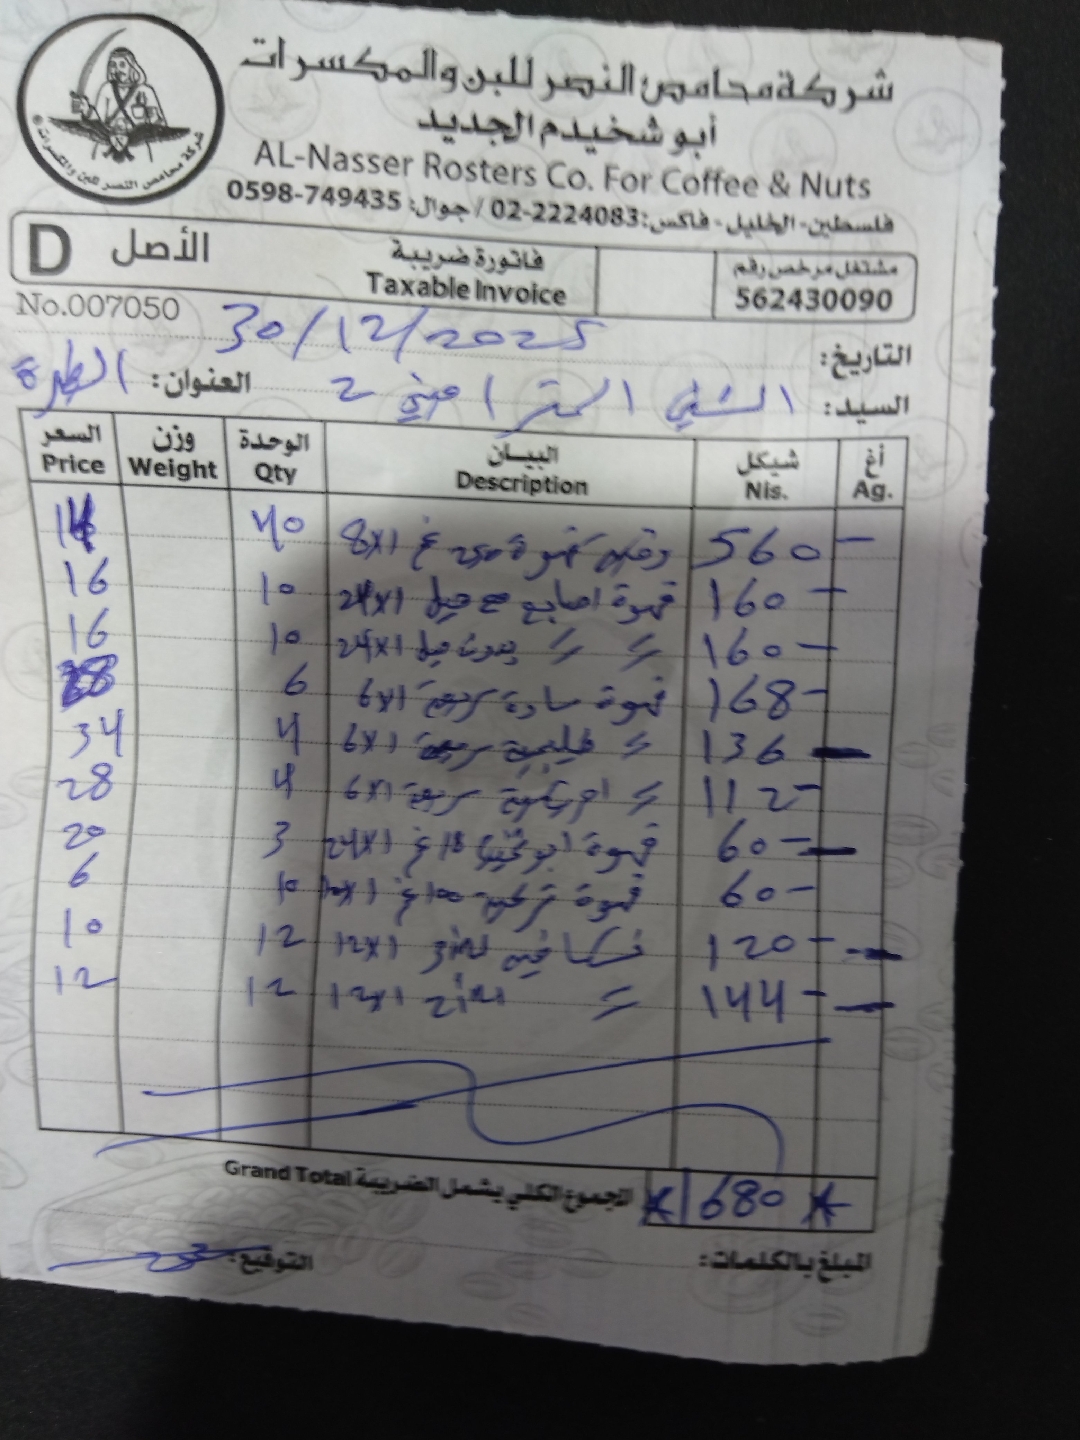 شركة محامص النصر للبن والمكسرات
أبو شخيدم الجديد
AL-Nasser Rosters Co. For Coffee & Nuts
فلسطين - الخليل - فاكس: 02-2224083 / جوال: 0598-749435
شركة محامص النصر للبن والمكسرات
مشتغل مرخص رقم
562430090
فاتورة ضريبة
Taxable Invoice
الأصل D
No.007050
التاريخ: 30/12/2025
السيد: 2 العنوان:
أغ شيكل البيـــان الوحدة وزن السعر
Ag. Nis. Description Qty Weight Price
560 8x1 40 14
160 قهوة اصابع مع هيل 24x1 10 16
160 〃 〃 بدون هيل 24x1 10 16
168 قهوة سادة سريعة 6x1 6 28
136 〃 خليجية سريعة 6x1 4 34
112 〃 امريكية سريعة 6x1 4 28
60 قهوة 18 غ 24x1 3 20
60 قهوة 100 غ 10x1 10 6
120 12x1 12 10
144 〃 12x1 12 12
المجموع الكلي يشمل الضريبة Grand Total 1680
المبلغ بالكلمات:
التوقيع: